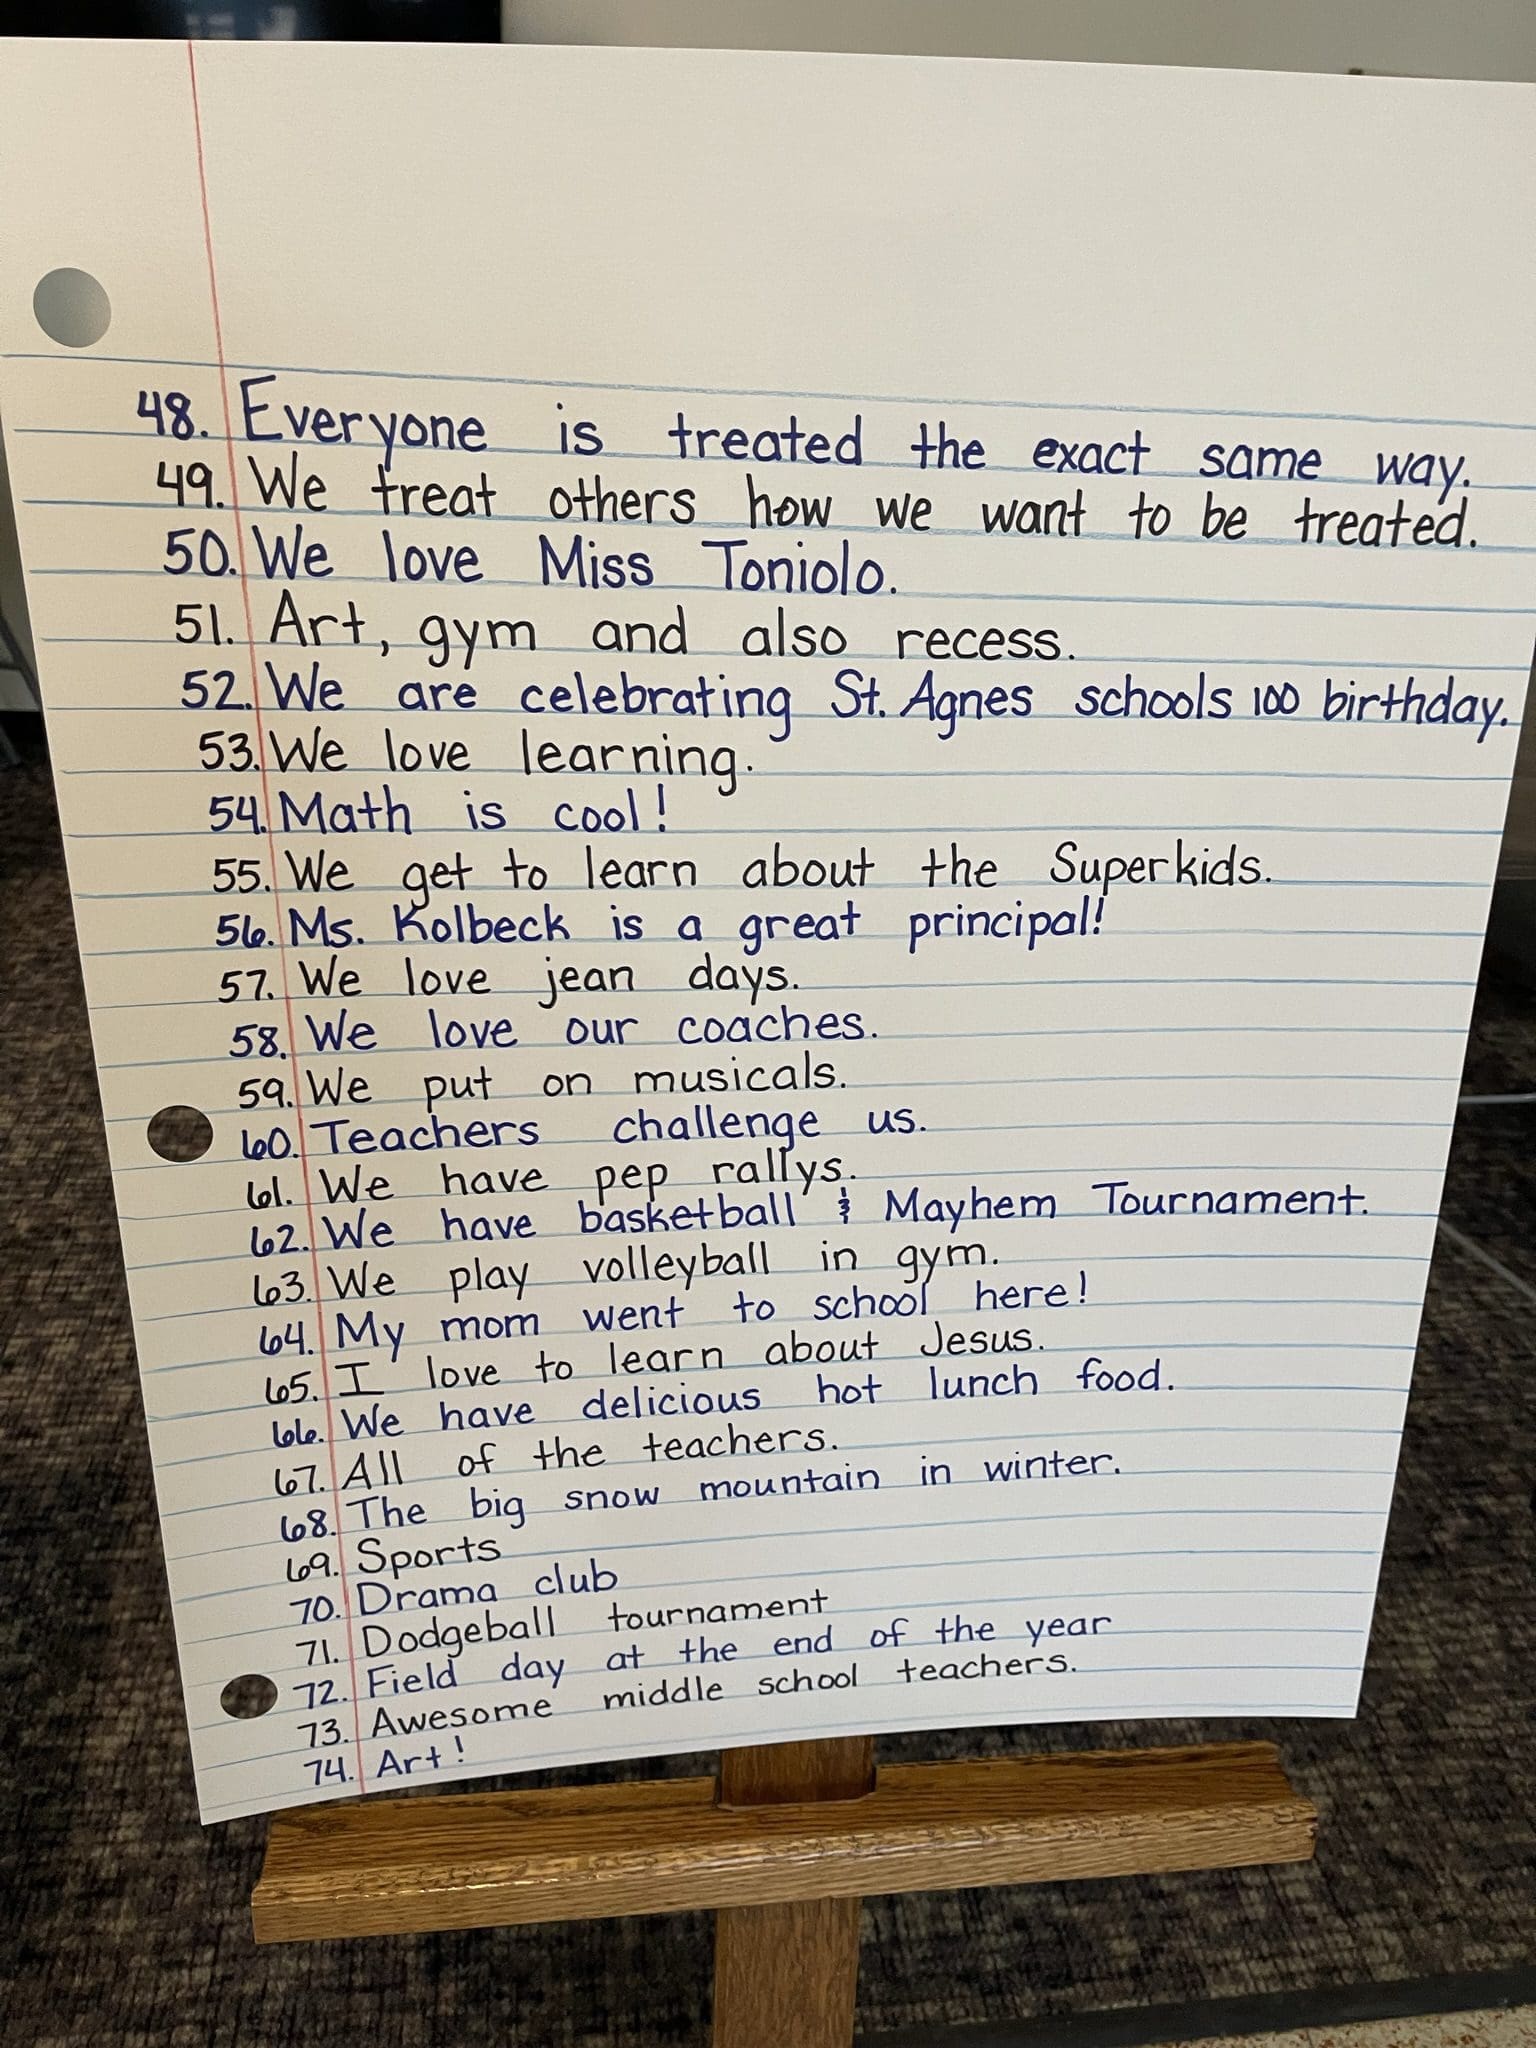 48. Everyone is treated the exact same way.
49. We treat others how we want to be treated.
50. We love Miss Toniolo.
51. Art, gym and also recess.
52. We are celebrating St. Agnes schools 100 birthday.
53. We love learning.
54. Math is cool!
55. We get to learn about the Superkids.
56. Ms. Kolbeck is a great principal!
57. We love jean days.
58. We love our coaches.
59. We put on musicals.
60. Teachers challenge us.
61. We have pep rallys.
62. We have basketball & Mayhem Tournament.
63. We play volleyball in gym.
64. My mom went to school here!
65. I love to learn about Jesus.
66. We have delicious hot lunch food.
67. All of the teachers.
68. The big snow mountain in winter.
69. Sports
70. Drama club
71. Dodgeball tournament
72. Field day at the end of the year
73. Awesome middle school teachers.
74. Art!